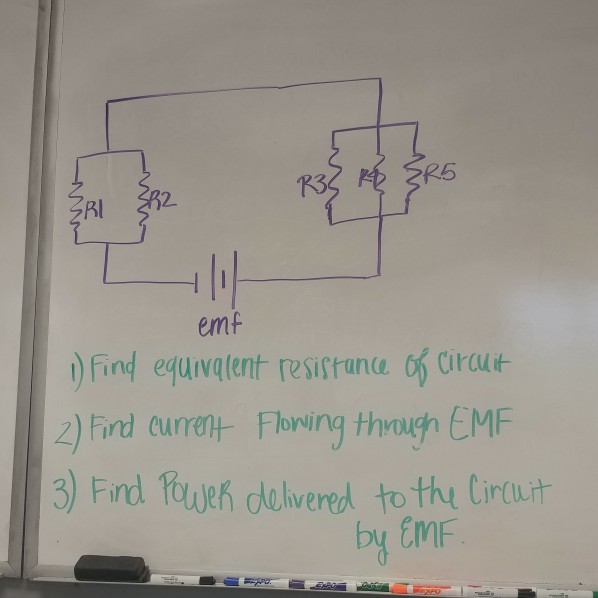 R1 R2 R3 R4 R5
emf
1) Find equivalent resistance of circuit
2) Find current Flowing through EMF
3) Find Power delivered to the Circuit
by EMF.
EXPO EXPO EXPO EXPO